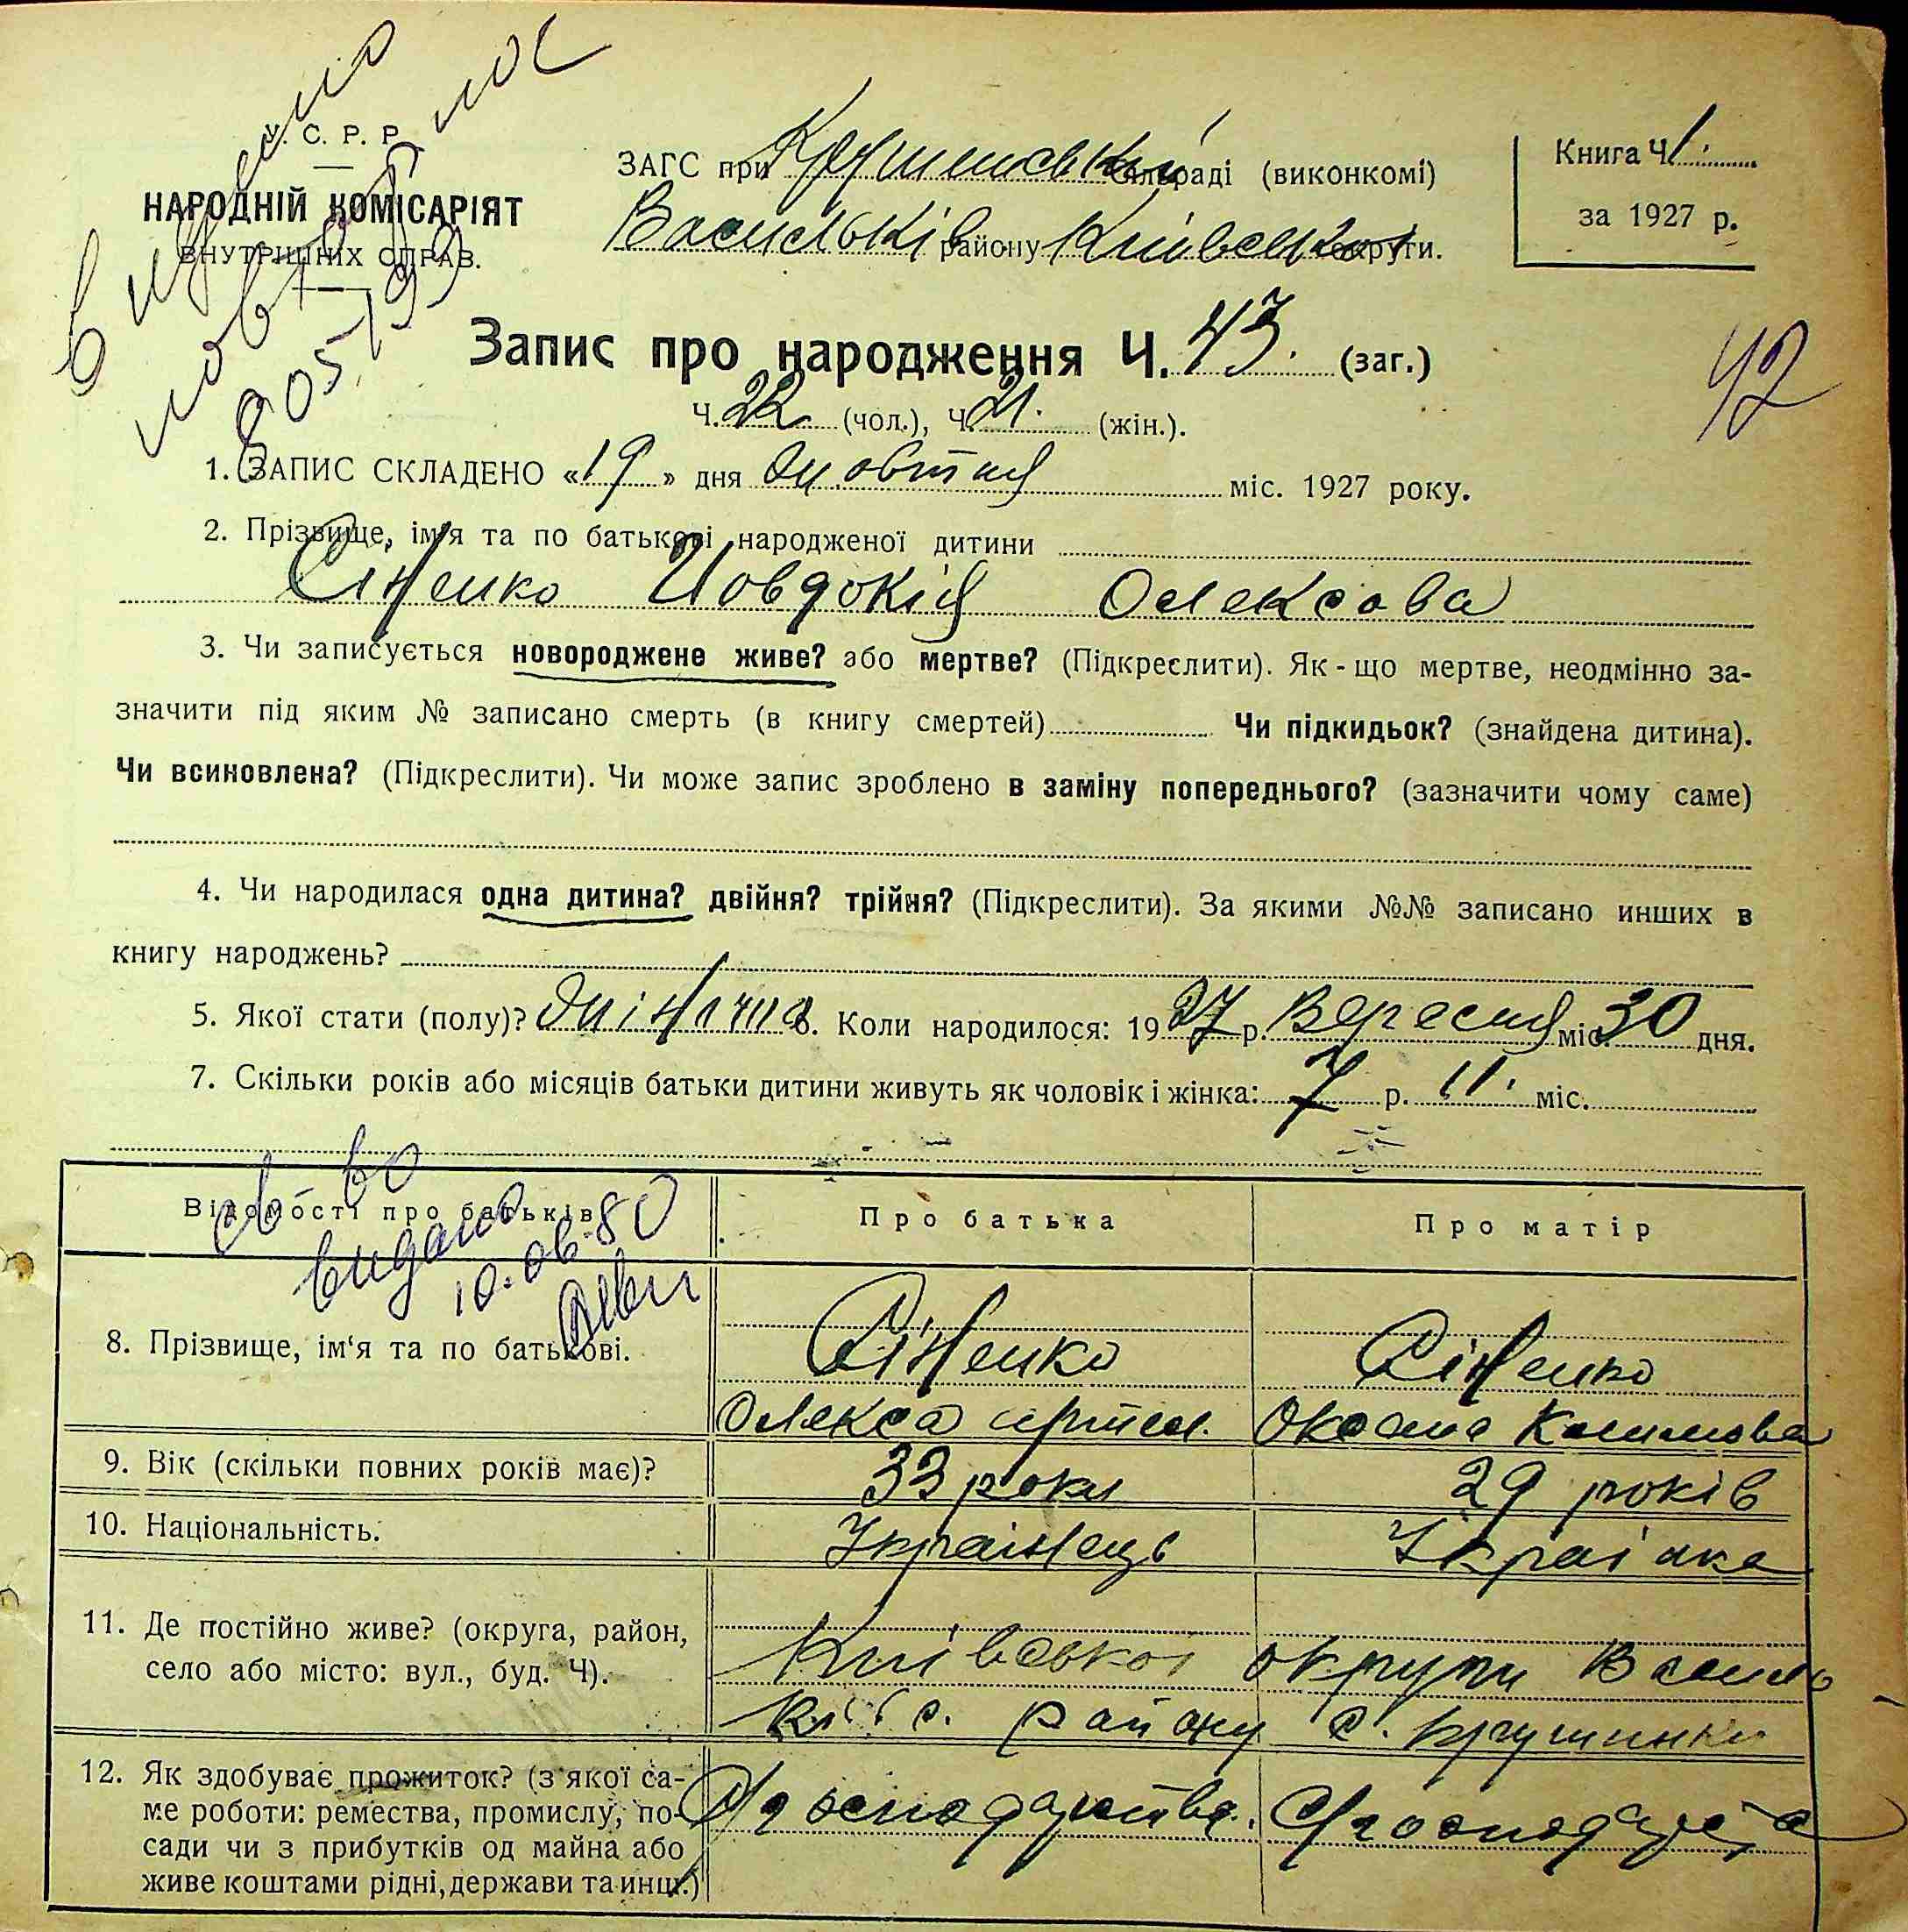 У. С. Р. Р.
НАРОДНІЙ КОМІСАРІЯТ
ВНУТРІШНІХ СПРАВ.
ЗАГС при Крушинській сільраді (виконкомі)
Васильків району Київської округи.
Книга Ч. 1.
за 1927 р.
Запис про народження Ч. 43. (заг.)
42
Ч. 22 (чол.), Ч. 21. (жін.).
1. ЗАПИС СКЛАДЕНО «19» дня жовтня міс. 1927 року.
2. Прізвище, ім'я та по батькові народженої дитини
Сіненко Йовдокія Олексова
3. Чи записується новороджене живе? або мертве? (Підкреслити). Як-що мертве, неодмінно за-
значити під яким № записано смерть (в книгу смертей) Чи підкидьок? (знайдена дитина).
Чи всиновлена? (Підкреслити). Чи може запис зроблено в заміну попереднього? (зазначити чому саме)
4. Чи народилася одна дитина? двійня? трійня? (Підкреслити). За якими №№ записано инших в
книгу народжень?
5. Якої стати (полу)? жіноча 6. Коли народилося: 1927 р. Вересня міс. 30 дня.
7. Скільки років або місяців батьки дитини живуть як чоловік і жінка: 7 р. 11. міс.
Відомості про батьків
Про батька
Про матір
видано
10.06.80
8. Прізвище, ім'я та по батькові.
Сіненко
Сіненко
Олекса Артем.
Оксана
9. Вік (скільки повних років має)?
33 роки
29 років
10. Національність.
Українець
Українка
11. Де постійно живе? (округа, район,
село або місто: вул., буд. Ч).
Київської округи Василь
ківс. району с. Крушинка
12. Як здобуває прожиток? (з якої са-
ме роботи: ремества, промислу, по-
сади чи з прибутків од майна або
живе коштами рідні, держави та инш.)
З господарства.
З господарства